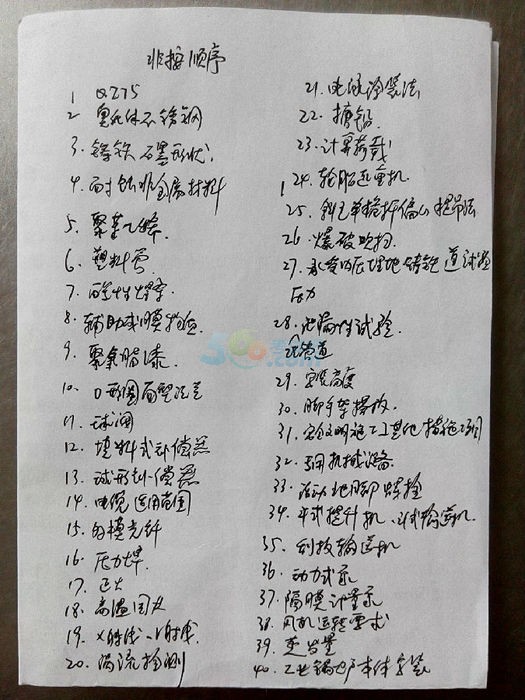 非按顺序
1 Q275
2 奥氏体不锈钢
3. 铸铁石墨形状.
4. 耐蚀非金属材料
5. 聚苯乙烯
6. 塑料管
7. 酸性焊条
8. 辅助或
9. 聚氨脂漆
10. O形圈面型法兰
11. 球阀
12. 填料式补偿器
13. 球形补偿器
14. 电缆适用范围
15. 多模光纤
16. 压力焊.
17. 正火
18. 高温回火
19. X射线、γ射线
20. 涡流检测
21. 电弧
22. 搪铅.
23. 计算荷载
24. 轮胎起重机.
25. 斜立单桅杆偏心提吊法
26. 爆破吹扫.
27. 承受内压埋地铸铁管道试验
压力
28. 泄漏性试验.
管道
29. 安装高度
30. 脚手架搭拆.
31. 安全文明施工及其他措施项目
32. 机械设备
33. 活动地脚螺栓
34. 斗式提升机、斗式输送机.
35. 刮板输送机
36. 动力式泵
37. 隔膜计量泵
38. 风机运转要求
39. 变
40. 工业锅炉本体安装